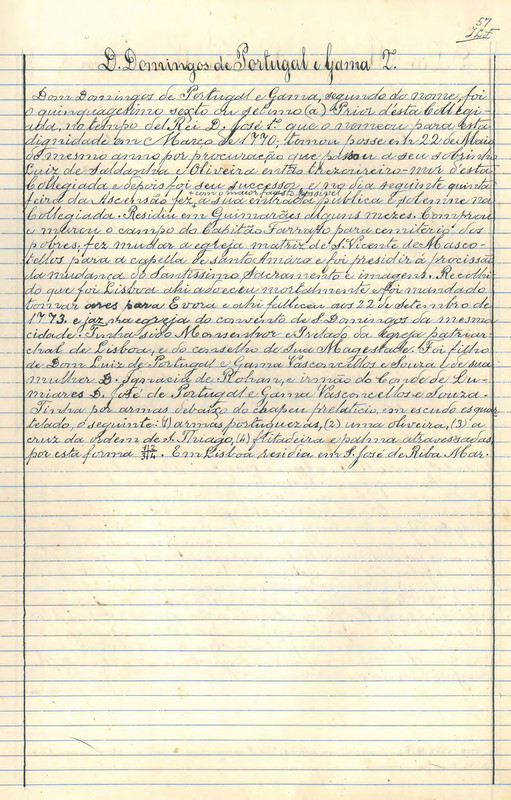 57
D. Domingos de Portugal e Gama 2.
Dom Domingos de Portugal e Gama, segundo do nome, foi
o quinquagesimo sexto ou setimo (a) Prior d'esta Collegi-
ada, no tempo del Rei D. José 1.º que o nomeou para esta
dignidade em Março de 1770; tomou posse em 22 de Maio
do mesmo anno por procuração que passou a seu sobrinho
Luiz de Saldanha e Oliveira então thezoureiro-mór d'esta
Collegiada e depois foi seu successor, e no dia seguinte quinta
feira da Ascensão fez, + com o maior fausto possivel, a sua entrada publica e solemne na
Collegiada. Residiu em Guimarães alguns mezes. Comprou
e murou o campo do Capitão Farrapo para cemiterio dos
pobres; fez mudar a egreja matriz de S. Vicente de Masco-
tellos para a capella de Santo Amaro e foi presidir á procissão
da mudança do Santissimo Sacramento e imagens. Recolhi-
do que foi Lisboa ahi adoeceu mortalmente e foi mandado
tomar ares para Evora e ahi falleceu aos 22 de Setembro de
1773. e jaz na egreja do convento de S. Domingos da mesma
cidade. Tinha sido Monsenhor e Prelado da egreja patriar-
chal de Lisboa, e do conselho de Sua Magestade. Foi filho
de Dom Luiz de Portugal e Gama Vasconcellos e Souza e de sua
mulher D. Ignacia de Rohan, e irmão do Conde de Lu-
miares D. José de Portugal e Gama Vasconcellos e Souza.
Tinha por armas debaixo do chapeu prelaticio, em escudo esquar-
telado, o seguinte: (1) armas portuguezas, (2) uma oliveira, (3) a
cruz da ordem de S. Thiago, (4) e palma atravessadas,
por esta forma 1|2 3|4. Em Lisboa residia em S. José de Riba Mar.